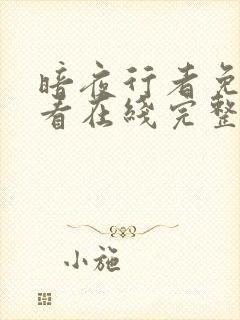 暗夜行者免
看在线完整
小施